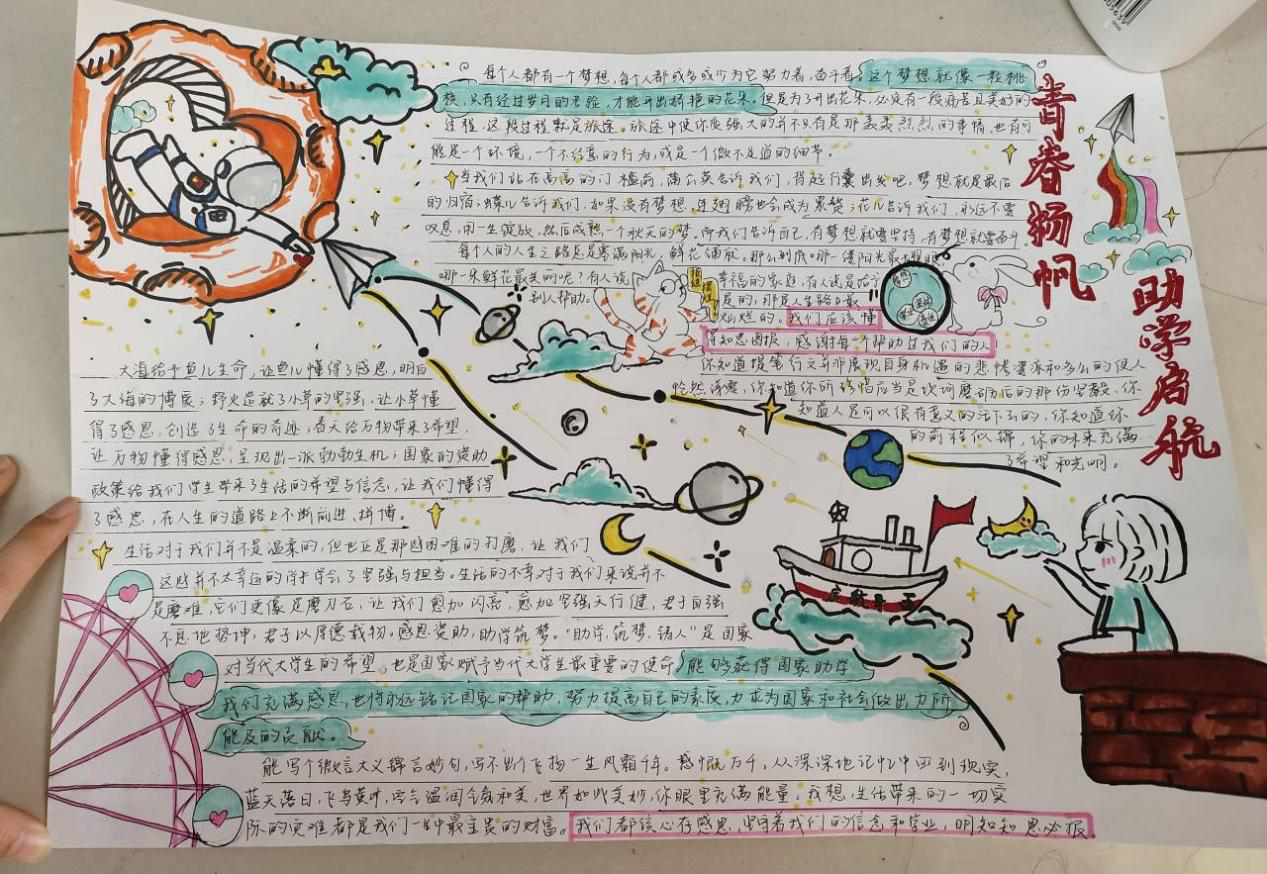 青春扬帆
助学启航
每个人都有一个梦想,每个人都或多或少为它努力着,奋斗着。这个梦想就像一粒桃
核,只有经过岁月的考验,才能开出娇艳的花朵。但是为了开出花朵,必定有一段痛苦且美好的
过程,这段过程就是旅途。旅途中使你变强大的并不只有是那轰轰烈烈的事情,也有可
能是一个环境,一个不经意的行为,或是一个微不足道的细节。
当我们站在高高的门槛前,蒲公英告诉我们,背起行囊出发吧,梦想就是最后
的归宿;蝶儿告诉我们,如果没有梦想,连翅膀也会成为累赘;花儿告诉我们,永远不要
叹息,用一生绽放,然后成熟一个秋天的梦。而我们告诉自己,有梦想就要坚持,有梦想就要奋斗。
每个人的人生之路总是写满阳光,鲜花铺就。那么到底哪一缕阳光最耀眼
哪一朵鲜花最美丽呢?有人说 幸福的家庭,有人说是给予
别人帮助。 是的,那是人生路中最
灿烂的。我们应该懂
得知恩图报,感谢每一个帮助过我们的人
你知道提笔行文并非展现自身机遇的悲惨凄凉和多么的使人
怆然涕零,你知道你所珍惜应当是坎坷磨砺后的那份坚毅,你
知道人是可以很有意义的活下去的,你知道你
的前程似锦,你的未来充满
了希望和光明。
大海给予鱼儿生命,让鱼儿懂得了感恩,明白
了大海的博爱;野火造就了小草的坚强,让小草懂
得了感恩,创造了生命的奇迹;春天给万物带来了希望,
让万物懂得感恩,呈现出一派勃勃生机;国家的资助
政策给我们学生带来了生活的希望与信念,让我们懂得
了感恩,在人生的道路上不断前进,拼博。
生活对于我们并不是温柔的,但也正是那些困难的打磨,让我们
这些并不太幸运的学子学会了坚强与担当。生活的不幸对于我们来说并不
是磨难,它们更像是磨刀石,让我们愈加闪亮,愈加坚强天行健,君子自强
不息地势坤,君子以厚德载物。感恩资助,助学筑梦。“助学,筑梦,铸人”是国家
对当代大学生的希望,也是国家赋予当代大学生最重要的使命能够获得国家助学
我们充满感恩,也将永远铭记国家的帮助,努力提高自己的素质,力求为国家和社会做出力所
能及的贡献。
能写个微言大义锦言妙句,写不出个飞扬一生风霜千年。感慨万千,从深深地记忆中回到现实,
蓝天落日,飞鸟黄叶,空气温润含氛和美,世界如此美妙,你眼里充满能量;我想,生活带来的一切实
际的贫难都是我们一生中最宝贵的财富。我们都该心存感恩,坚守着我们的信念和学业,明知知恩必报。